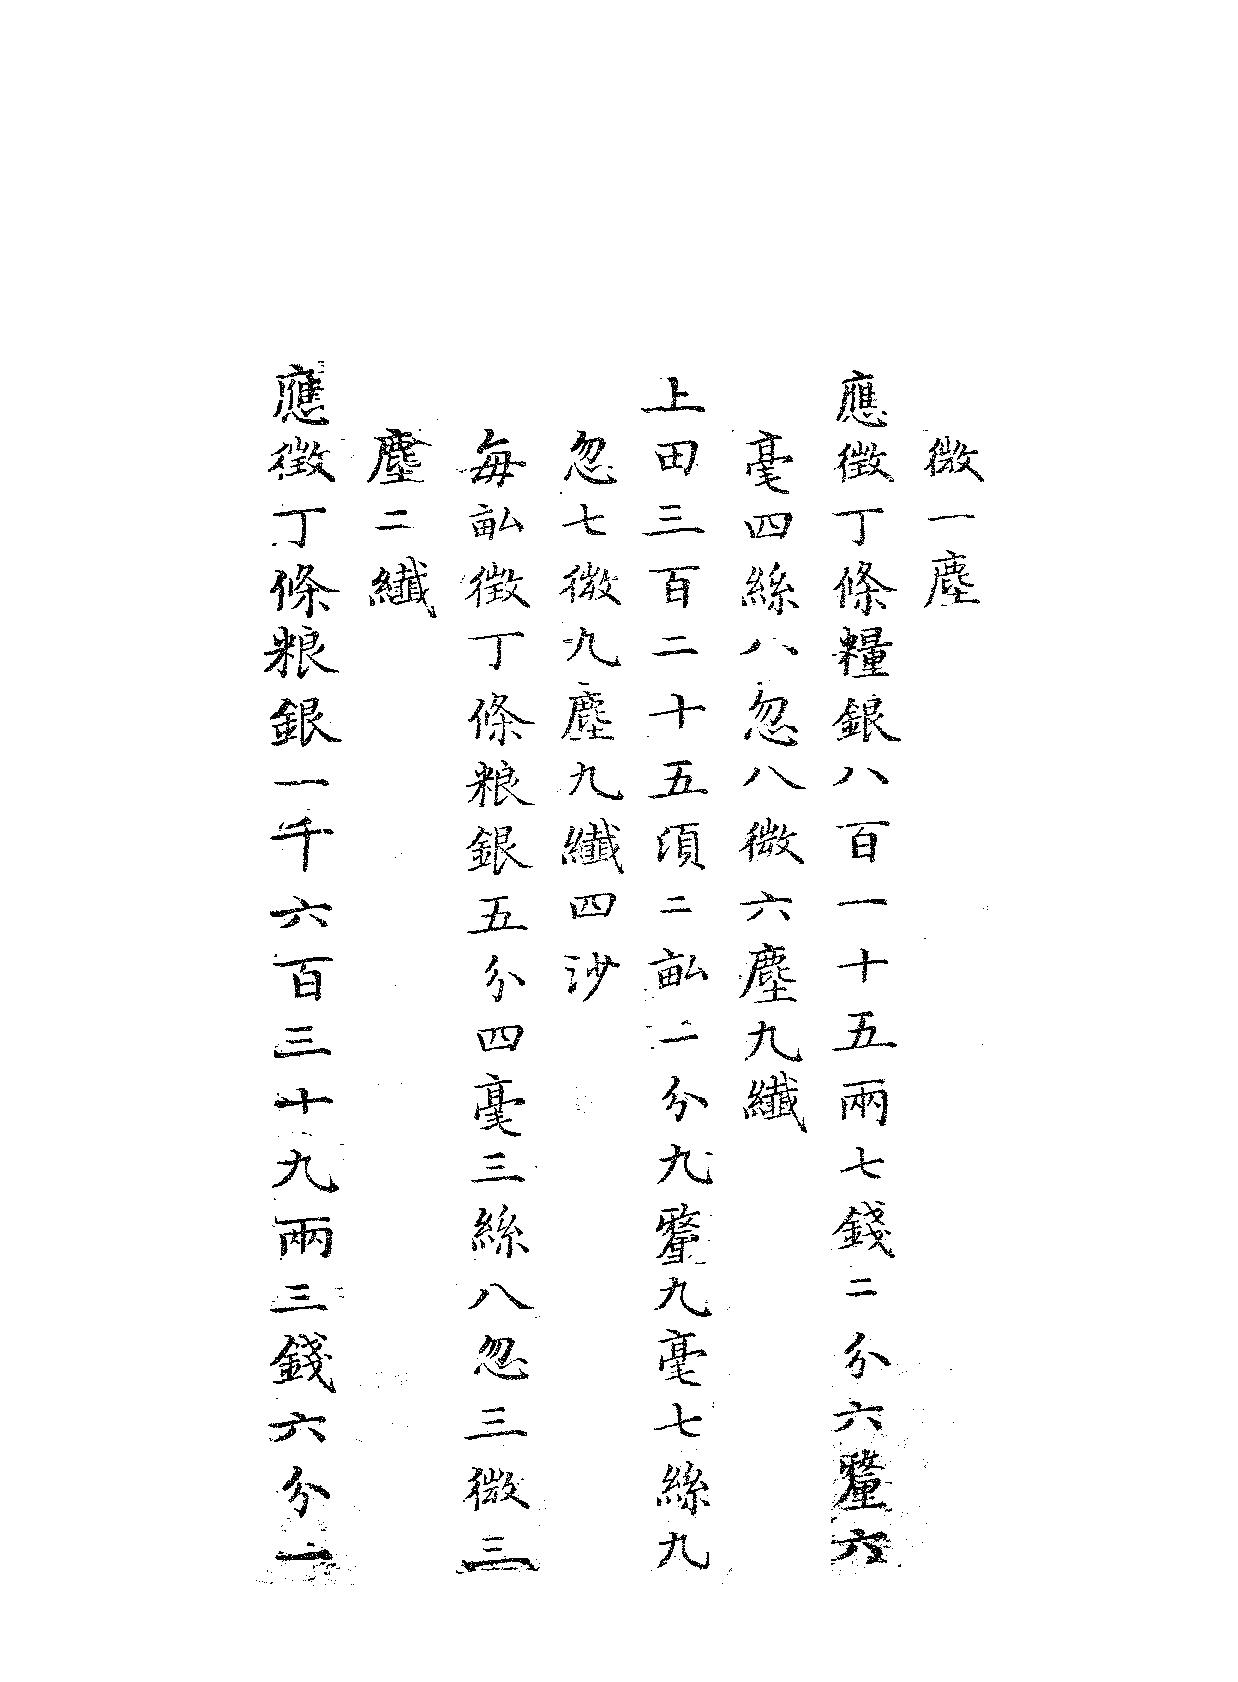 微一塵
應徵丁條糧銀八百一十五兩七錢二分六釐六
毫四絲八忽八微六塵九纖
上田三百二十五頃二畝二分九釐九毫七絲九
忽七微九塵九纖四沙
每畝徵丁條粮銀五分四毫三絲八忽三微三
塵二纖
應徵丁條粮銀一千六百三十九兩三錢六分一